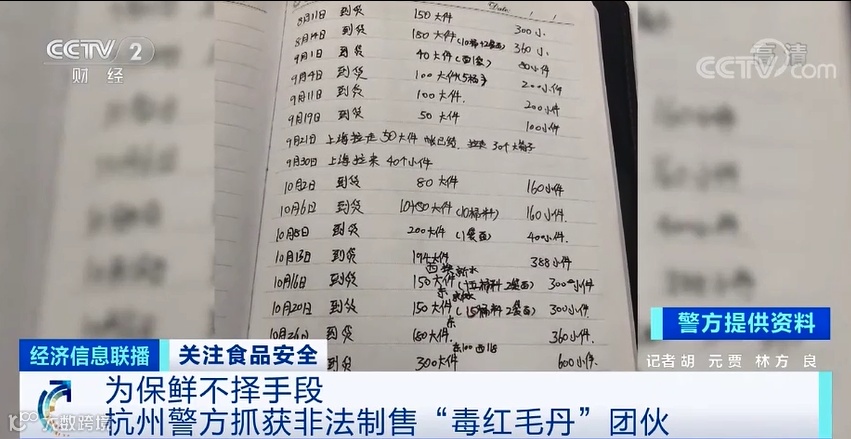 CCTV 2
财经
高清
CCTV.com
Date:
8月11日 到货 150大件 300小
8月14日 到货 180大件 360小
9月1日 到货 40大件 80小件
9月4日 到货 100大件 200小件
9月11日 到货 100大件. 200小件
9月19日 到货 50大件 100小件
9月21日 上海拉走50大件 帐已结. 30个大箱子
9月30日 上海拉来 40个小件
10月2日 到货 80大件 160小件
10月6日 到货 160小件.
10月8日 到货 200大件 400小件.
10月13日 到货 194大件 388小件
10月16日 到货 150大件 300小件
10月20日 到货 150大件 300小件.
10月26日 到货 180大件 360小件.
到货 300大件 600小件.
警方提供资料
记者 胡 元 贾 林 方 良
经济信息联播 关注食品安全
为保鲜不择手段
杭州警方抓获非法制售“毒红毛丹”团伙
大数跨境